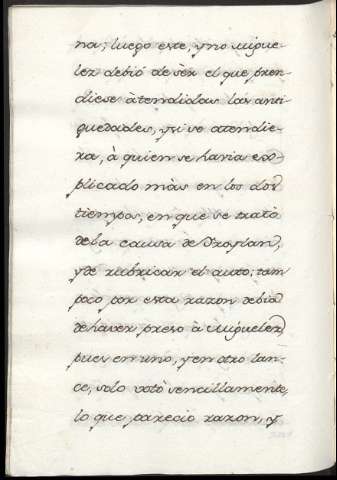 na; luego este, y no migue-
lez debió de sèr el que pren-
diese àtendidas las anti-
guedades, y si se atendie-
ra, à quien se havia ex-
plicado màs en los dos
tiempos, en que se tratò
dela causa de Froylan,
y de rubricar el auto; tam
poco por esta razon debia
de haver preso à Miguelez,
pues en uno, y en otro lan-
ce, solo votò sencillamente,
lo que parecio razon, y